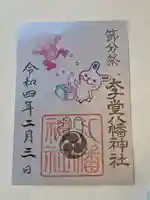 節分祭
太子堂八幡神社
令和四年二月三日
八幡
神社